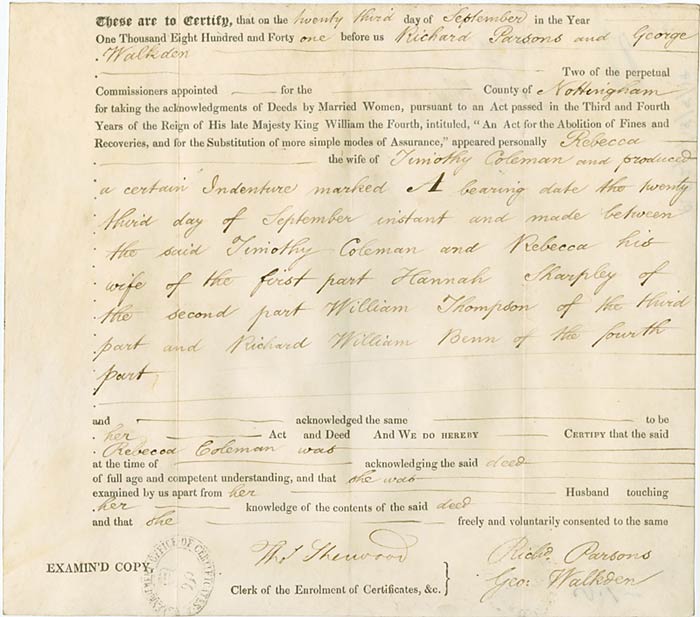 These are to Certify, that on the twenty third day of September in the Year
One Thousand Eight Hundred and Forty one before us Richard Parsons and George
Walkden
Two of the perpetual
Commissioners appointed for the County of Nottingham
for taking the acknowledgments of Deeds by Married Women, pursuant to an Act passed in the Third and Fourth
Years of the Reign of His late Majesty King William the Fourth, intituled, "An Act for the Abolition of Fines and
Recoveries, and for the Substitution of more simple modes of Assurance," appeared personally Rebecca
the wife of Timothy Coleman and produced
a certain Indenture marked A bearing date the twenty
third day of September instant and made between
the said Timothy Coleman and Rebecca his
wife of the first part Hannah Sharpley of
the second part William Thompson of the third
part and Richard William Benn of the fourth
part
and acknowledged the same to be
her Act and Deed And WE DO HEREBY CERTIFY that the said
Rebecca Coleman was
at the time of acknowledging the said deed
of full age and competent understanding, and that she was
examined by us apart from her Husband touching
her knowledge of the contents of the said deed
and that she freely and voluntarily consented to the same
EXAMIN'D COPY,
OFFICE OF CERTIFICATES
Sherwood
Clerk of the Enrolment of Certificates, &c.
Richd. Parsons
Geo: Walkden